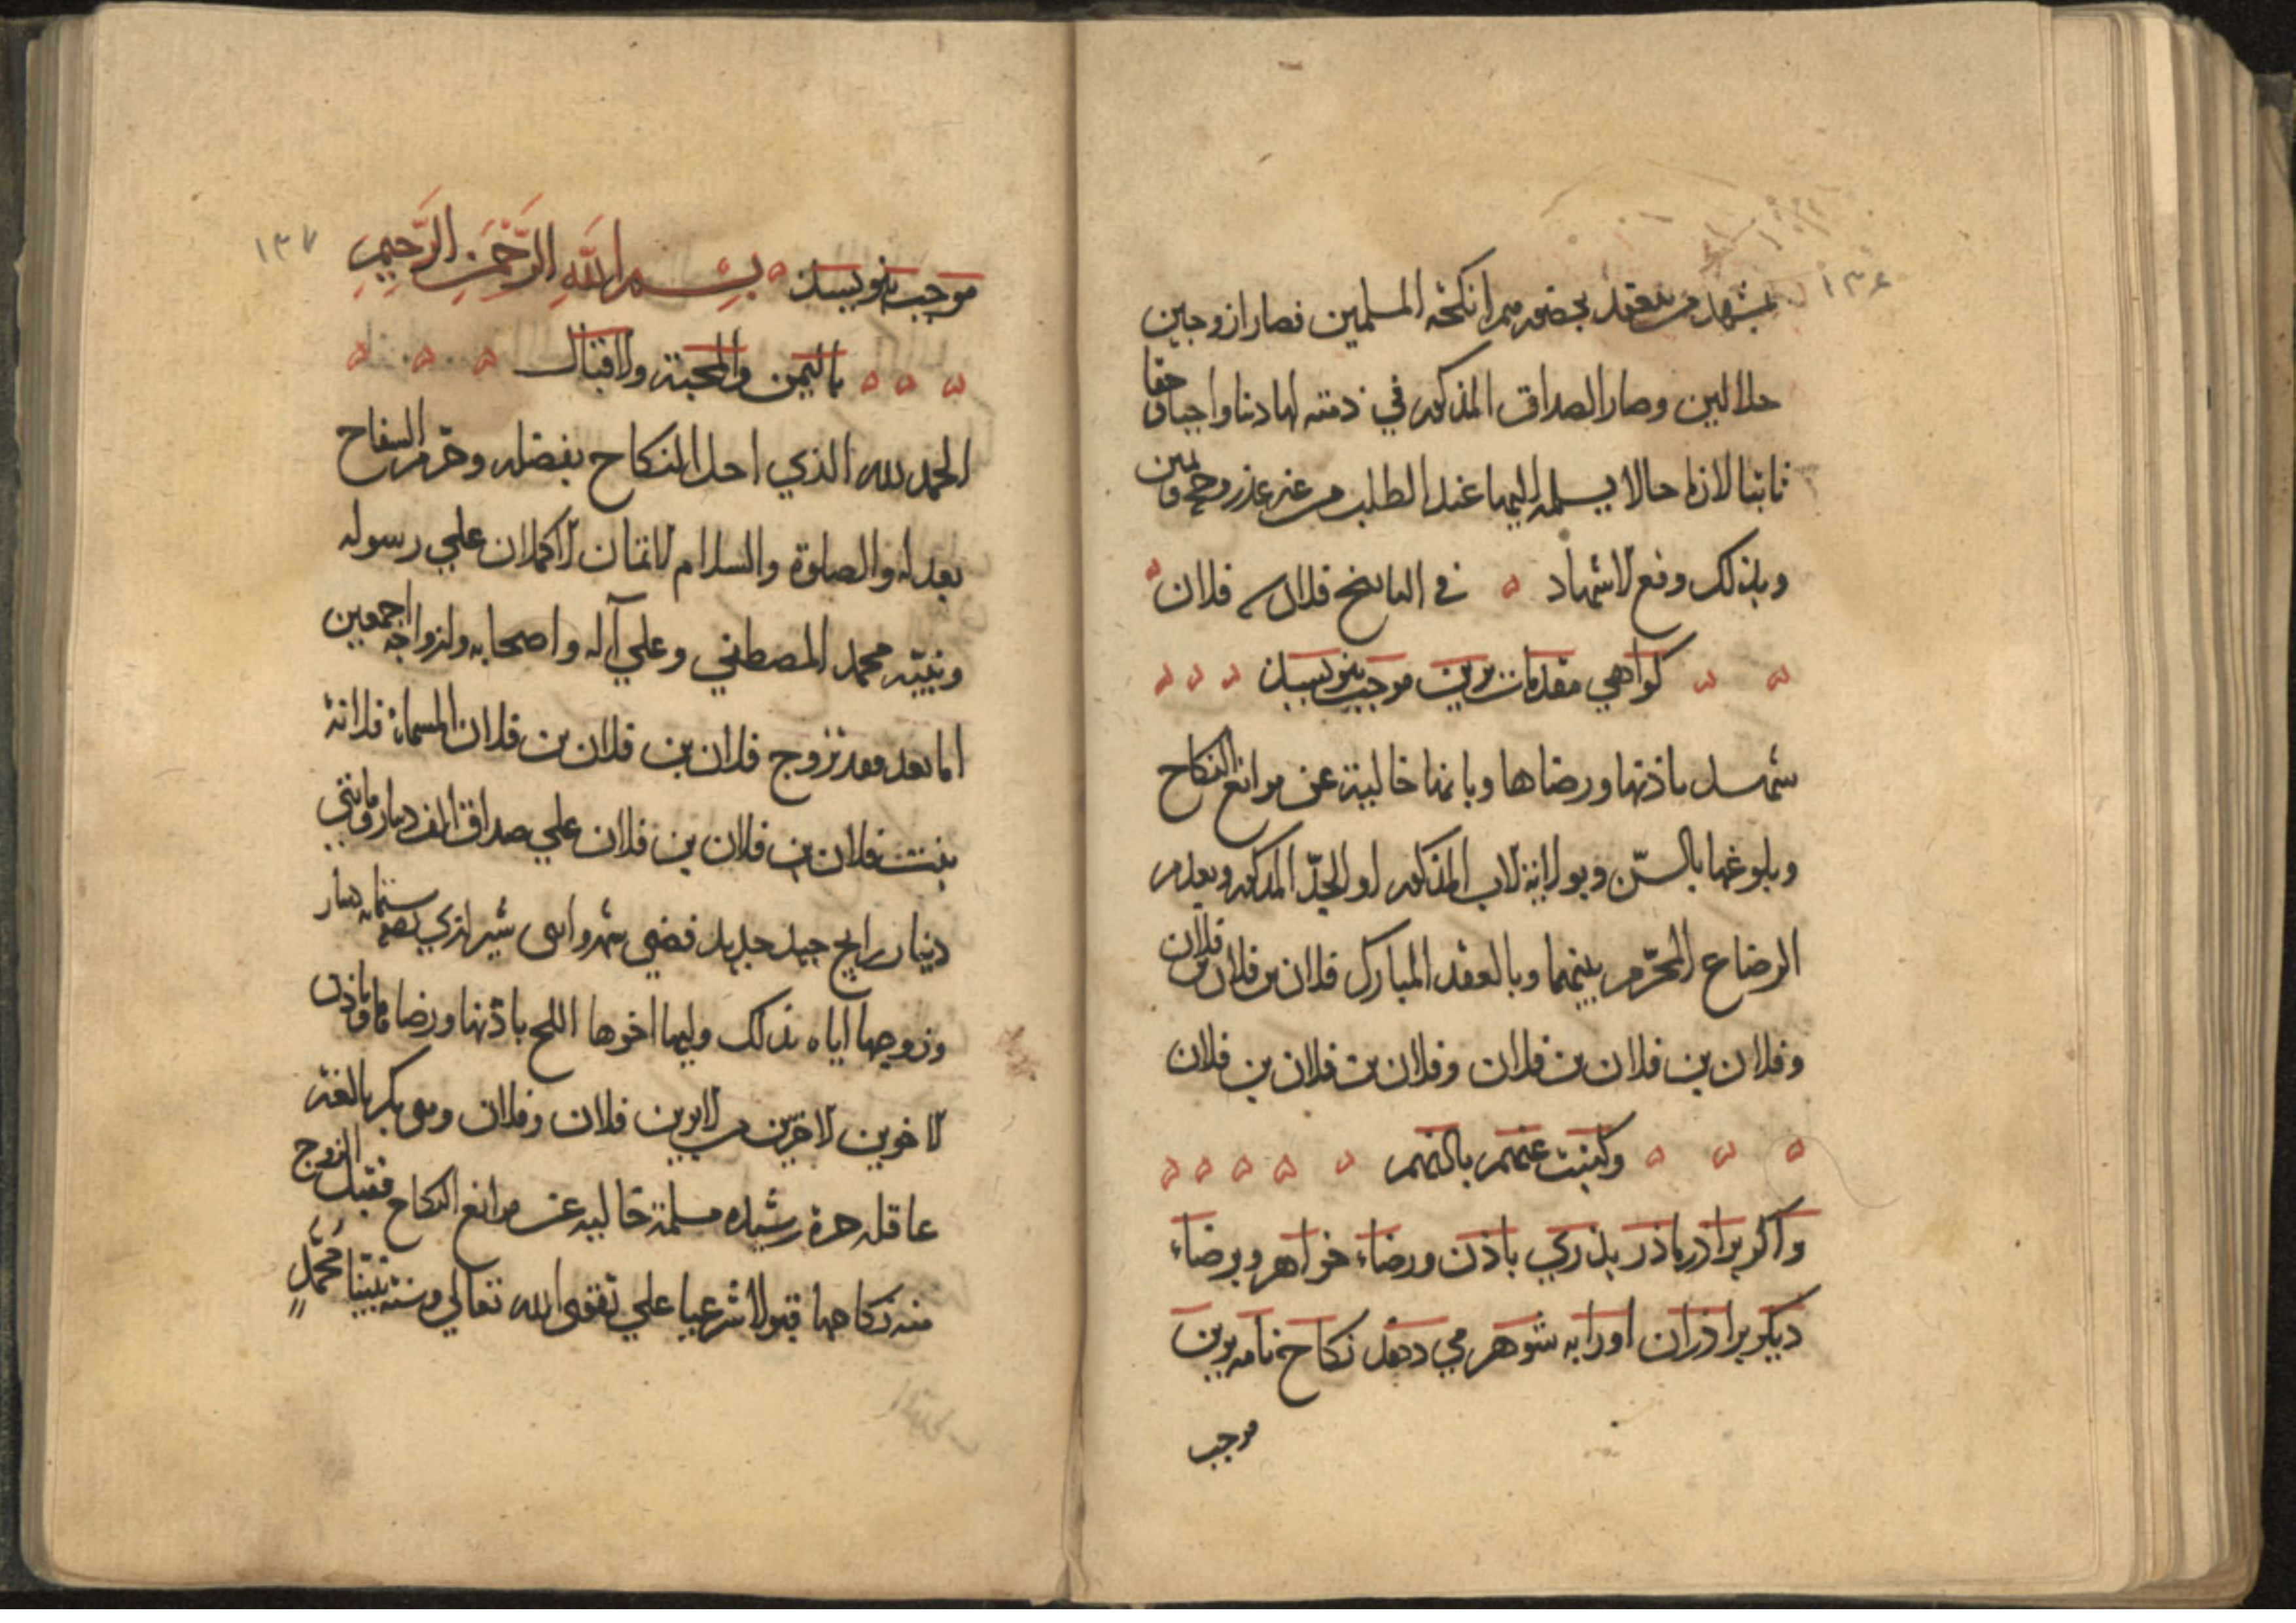 ١٣٦
بمشهد من ينعقد بحضورهم انكحة المسلمين فصارا زوجين
حلالين وصار الصداق المذكور في ذمته لها دينا واجبا و حقا
ثابتا لازما حالا يسلمه اليها عند الطلب من غير عذر و
وبذلك وقع الاشهاد في التاريخ فلان فلان
كواهي مقدمات برين موجب بنويسد
شهد باذنها ورضاها وبانها خالية عن موانع النكاح
وبلوغها بالسن وبولاية الاب المذكور او الجد المذكور وبعدم
الرضاع المحرم بينهما وبالعقد المبارك فلان بن فلان بن فلان
وفلان بن فلان بن فلان وفلان بن فلان بن فلان
وكتبت عنهم باذنهم
واكر براذر ماذر بذري باذن ورضاء خواهر و برضاء
ديكر براذران اورا به شوهر مي دهد نكاح نامه برين
موجب
١٣٧
موجب بنويسد بِسْمِ اللَّهِ الرَّحْمَنِ الرَّحِيمِ
باليمن والمحبة والاقبال
الحمد لله الذي احل النكاح بفضله وحرم السفاح
بعدله والصلوة والسلام الاتمان الاكملان علي رسوله
ونبيّه محمد المصطفي وعلي آله واصحابه وازواجه اجمعين
اما بعد فقد تزوج فلان بن فلان بن فلان المسماة فلانة
بنت فلان بن فلان بن فلان علي صداق الف دينار ومايتي
دينار رايج جيد جديد فضي شيرازي نصفه ستمايه دينار
وزوجها اياه بذلك وليها اخوها باذنها ورضاها وباذن
الاخوين الاخرين من الابوين فلان وفلان وهي بكر بالغة
عاقلة حرة رشيده مسلمة خالية عن موانع النكاح فقبل الزوج
منه نكاحها قبولا شرعيا علي تقوى الله تعالي وسنة نبيّنا محمّدٍ